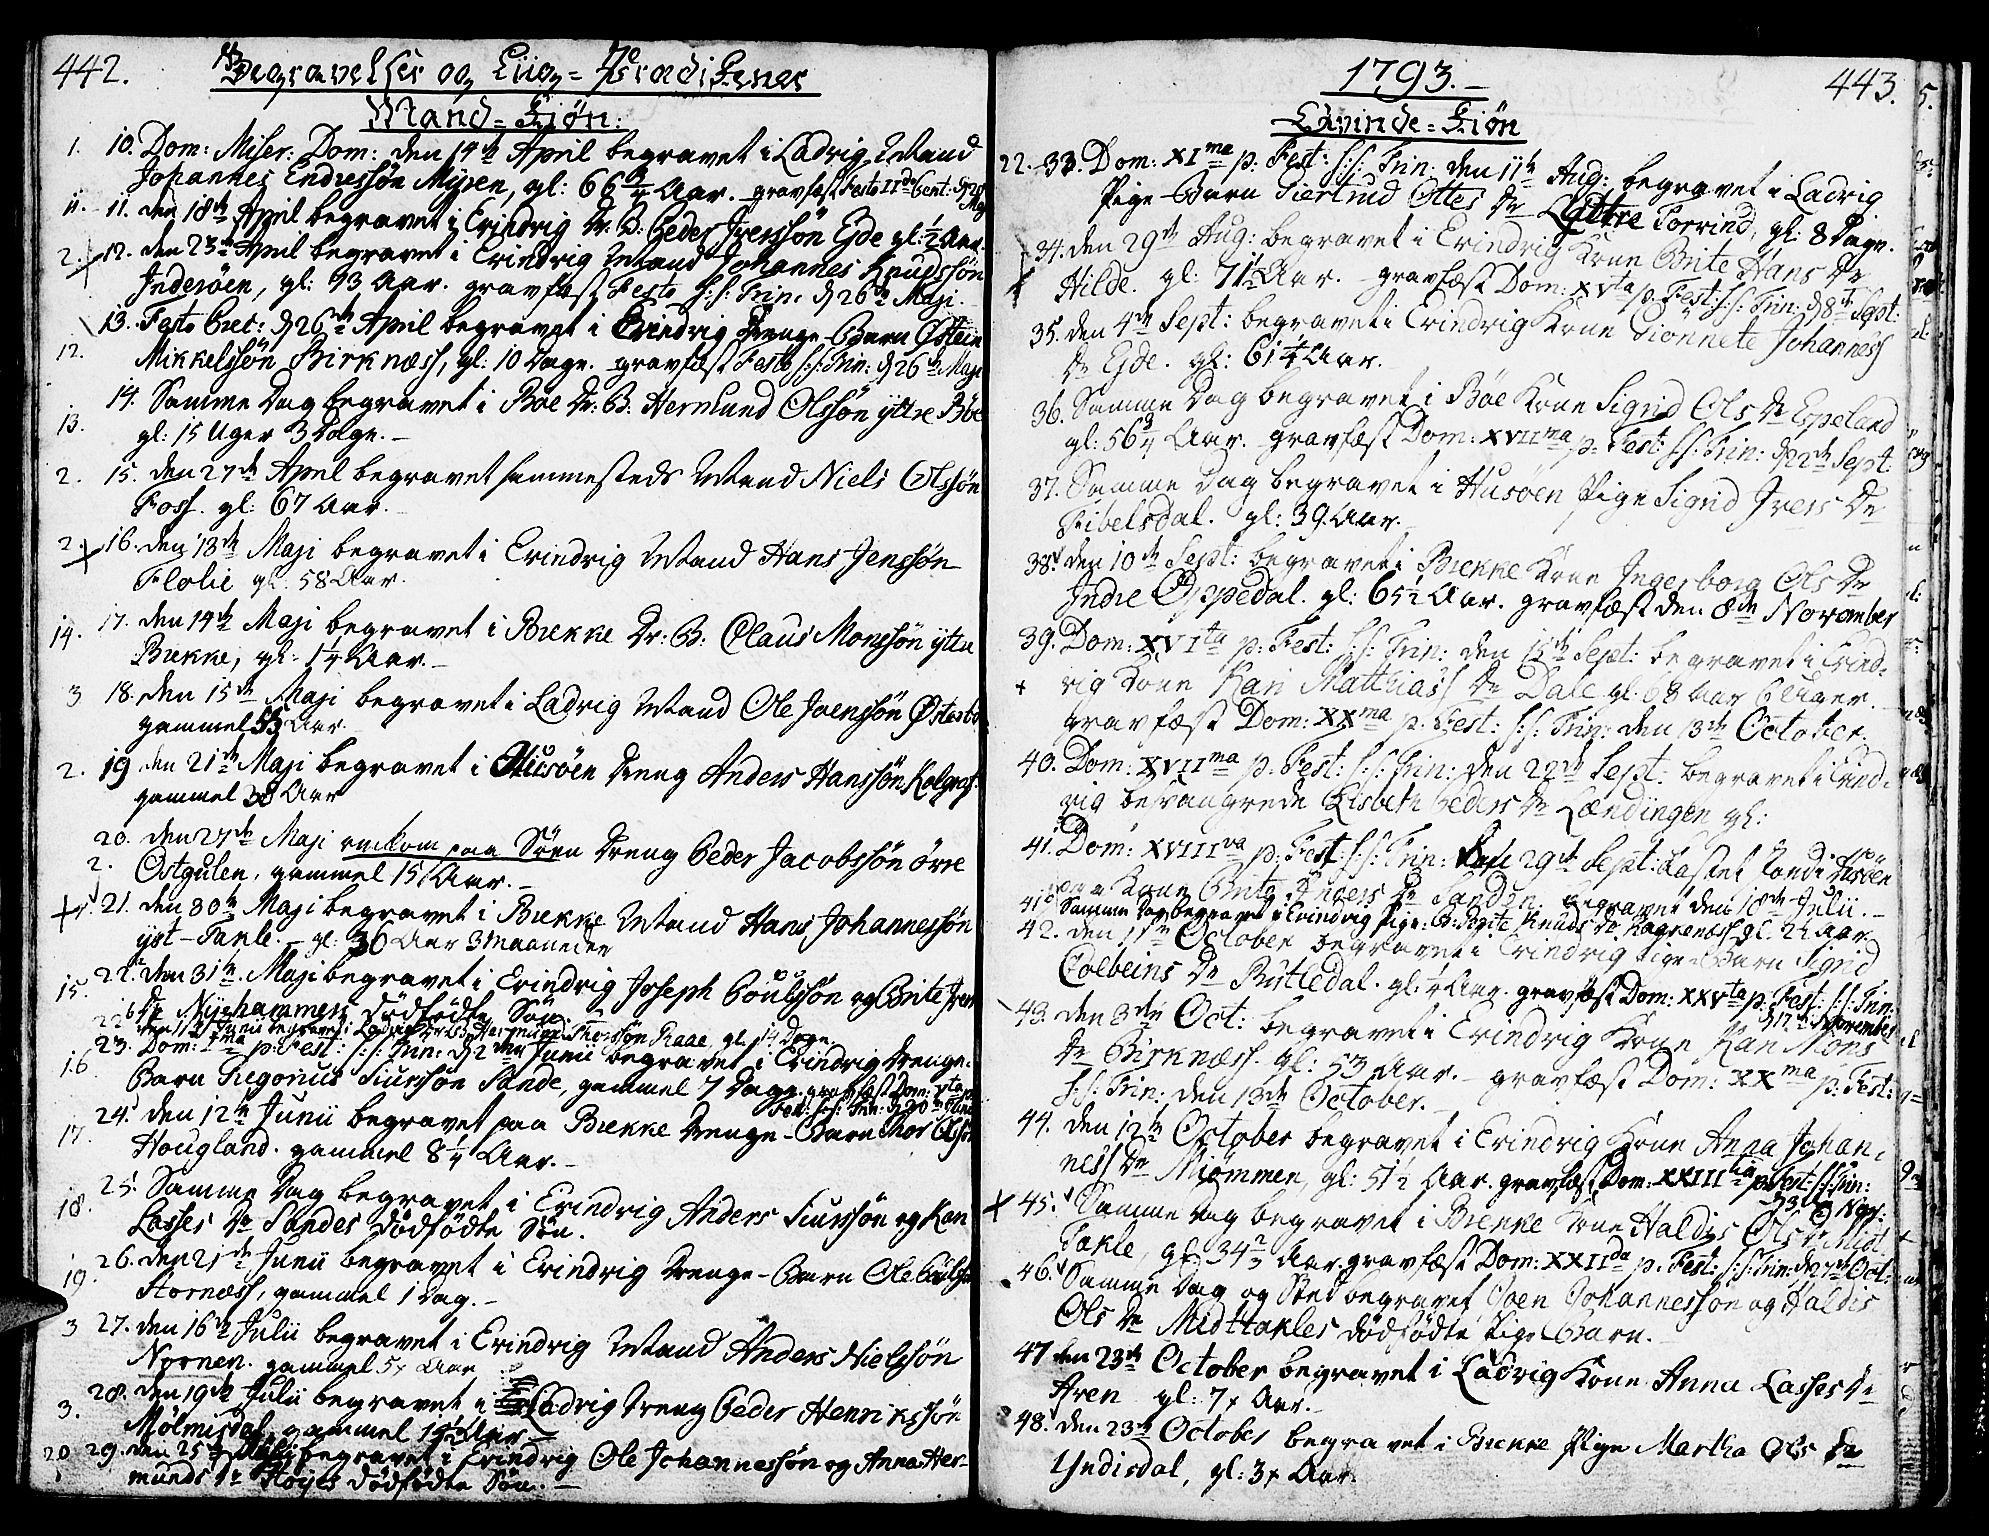 442. Begravelser og Liig-Prædikener
Mand-Kiøn:
1. 10. Dom: Miser: Dom: den 14de April begravet i Ladvig Mand
Johannes Endressøn Myren, gl: 66 3/4 Aar. gravfæst Festo II Pent: d 20 Maj
11. 11. den 18de April begravet i Evindvig Dr. B. Peder Iverssøn Eide gl: 1/2 Aar.
2. 12. den 23de April begravet i Evindvig Mand Johannes Knudssøn
Inderøen, gl: 43 Aar. gravfæst Festo S:S: Trin: d 26de Maji.
13. Festo Pret: d 26de April begravet i Evindvig Drenge-Barn Østein
12. Mikkelssøn Birknæss, gl: 10 Dage. gravfæst Festo S:S: Trin: d 26de Maji
14. Samme Dag begravet i Bøe Dr: B. Hermund Olssøn yttre Bøe
13. gl: 15 Uger 3 Dage.
2. 15. den 27de April begravet sammesteds Mand Niels Olssøn
Foss. gl: 67 Aar.
2. 16. den 13de Maji begravet i Evindvig Mand Hans Jenssøn
Flolie gl: 58 Aar.
17. den 14de Maji begravet i Brekke Dr: B. Claus Monssøn yttre
14. Brekke, gl: 1 1/4 Aar.
3 18. den 15de Maji begravet i Ladvig Mand Ole Joenssøn Østerbø
gammel 53 Aar.
2. 19 den 21de Maji begravet i Husøen Dreng Anders Hanssøn
gammel 38 Aar
20. den 27de Maji omkom paa Søen Dreng Peder Jacobssøn øvre
2. Ostgulen, gammel 15 Aar.
21. den 30de Maji begravet i Brekke Mand Hans Johannessøn
yst-Takle. gl: 36 Aar 3 Maaneder
22. den 31te Maji begravet i Evindvig Joseph Povelssøn og Brite Ivers
15. Dr Nyehammers dødfødte Søn.
22b den 1te Junii begravet i Ladvig Dr: B: Hermund Raae gl. 14 Dage.
23. Dom: Ima p: Fest: S:S: Trin: d 2den Junii begravet i Evindvig Drenge-
16. Barn Gregorius Siurssøn Sande, gammel 7 Dage. gravfæst Dom: Vta p:
Fest: S:S: Trin: d 30te Junii
24. den 12te Junii begravet paa Brekke Drenge-Barn Thor Olssøn
17. Hougland. gammel 8 1/4 Aar.
25. Samme Dag begravet i Evindvig Anders Siurssøn og Kari
18. Lasses Dr Sandes dødfødte Søn.
26. den 21de Junii begravet i Evindvig Drenge-Barn Ole
19. Stornæss, gammel 1 Dag.
3 27. den 16de Julii begravet i Evindvig Mand Anders Nielssøn
Nornen. gammel Aar
28. den 19de Julii begravet i Ladvig Dreng Peder Henrikssøn
3. Mølmisdal, gammel Aar.
20 29. den 25de Julii begravet i Evindvig Ole Johannessøn og Anna Her-
munds Dr Høyes dødfødte Søn.
1793. 443.
Qvinde-Kiøn
22. 33. Dom: XIma p: Fest: S:S: Trin: den 11te Aug: begravet i Ladvig
Pige-Barn Siertrud Ottes Dr Yttre Torvind, gl: 8 Dage.
34. den 29de Aug: begravet i Evindvig Kone Brite Hans Dr
Hilde. gl: 71 1/2 Aar. gravfæst Dom: XVta p: Fest: S:S: Trin: d 8de Sept:
35. den 4de Sept: begravet i Evindvig Kone Sionnete Johanness
Dr Eide. gl: 61 1/4 Aar.
36. Samme Dag begravet i Bøe Kone Sigrid Ols Dr Espeland
gl: 56 3/4 Aar. gravfæst Dom: XVIIma p: Fest: S:S: Trin: d 22de Sept:
37. Samme Dag begravet i Husøen Pige Sigrid Ivers Dr
Fibelsdal. gl: 39 Aar.
38. den 10de Sept: begravet i Brekke Kone Ingerborg Ols Dr
Indre Oppedal. gl: 65 1/2 Aar. gravfæst den 8de November
39. Dom: XVIta p: Fest: S:S: Trin: den 15de Sept: begravet i Evind-
vig Kone Kari Matthiass Dr Dale gl: 68 Aar 6 Uger.
gravfæst Dom: XXma p: Fest: S:S: Trin: den 13de October.
40. Dom: XVIIma p: Fest: S:S: Trin: den 22de Sept: begravet i Evind-
vig besvangrede Lisbeth Peders Dr Lændingen gl:
41. Dom: XVIIIva p: Fest: S:S: Trin: den 29de Sept: kastet Jord i Husøen
paa Kone Brite Anders Dr Sanden. begravet den 18de Julii.
41b Samme Dag begravet i Evindvig Pige-B: Dorite Knuds Dr gl: 2 1/2 Aar
42. den 1te October begravet i Evindvig Pige-Barn Sigrid
Colbeins Dr Rutledal. gl: 1/4 Aar. gravfæst Dom: XXVta p: Fest: S:S: Trin:
d 17de November
43. den 3die Oct: begravet i Evindvig Kone Kari Mons
Dr Birknæss. gl: 53 Aar. gravfæst Dom: XXma p: Fest:
S:S: Trin: den 13de October.
44. den 12te October begravet i Evindvig Kone Anna Johan-
ness Dr Miømmen, gl: 51 1/2 Aar. gravfæst Dom: XXIIItia p: Fest: S:S: Trin:
d 3die Nov:
45. Samme Dag begravet i Brekke Kone Haldis Ols Dr Midt
Takle, gl: 34 2/3 Aar. gravfæst Dom: XXIIda p: Fest: S:S: Trin: d 27de Oct:
46. Samme Dag og Sted begravet Joen Johannessøn og Haldis
Ols Dr Midttakles dødfødte Pige Barn.
47 den 23de October begravet i Ladvig Kone Anna Lasses Dr
Aren gl: 7 Aar.
48. den 23de October begravet i Brekke Pige Martha Ols Dr
Yndisdal, gl: 3 Aar.